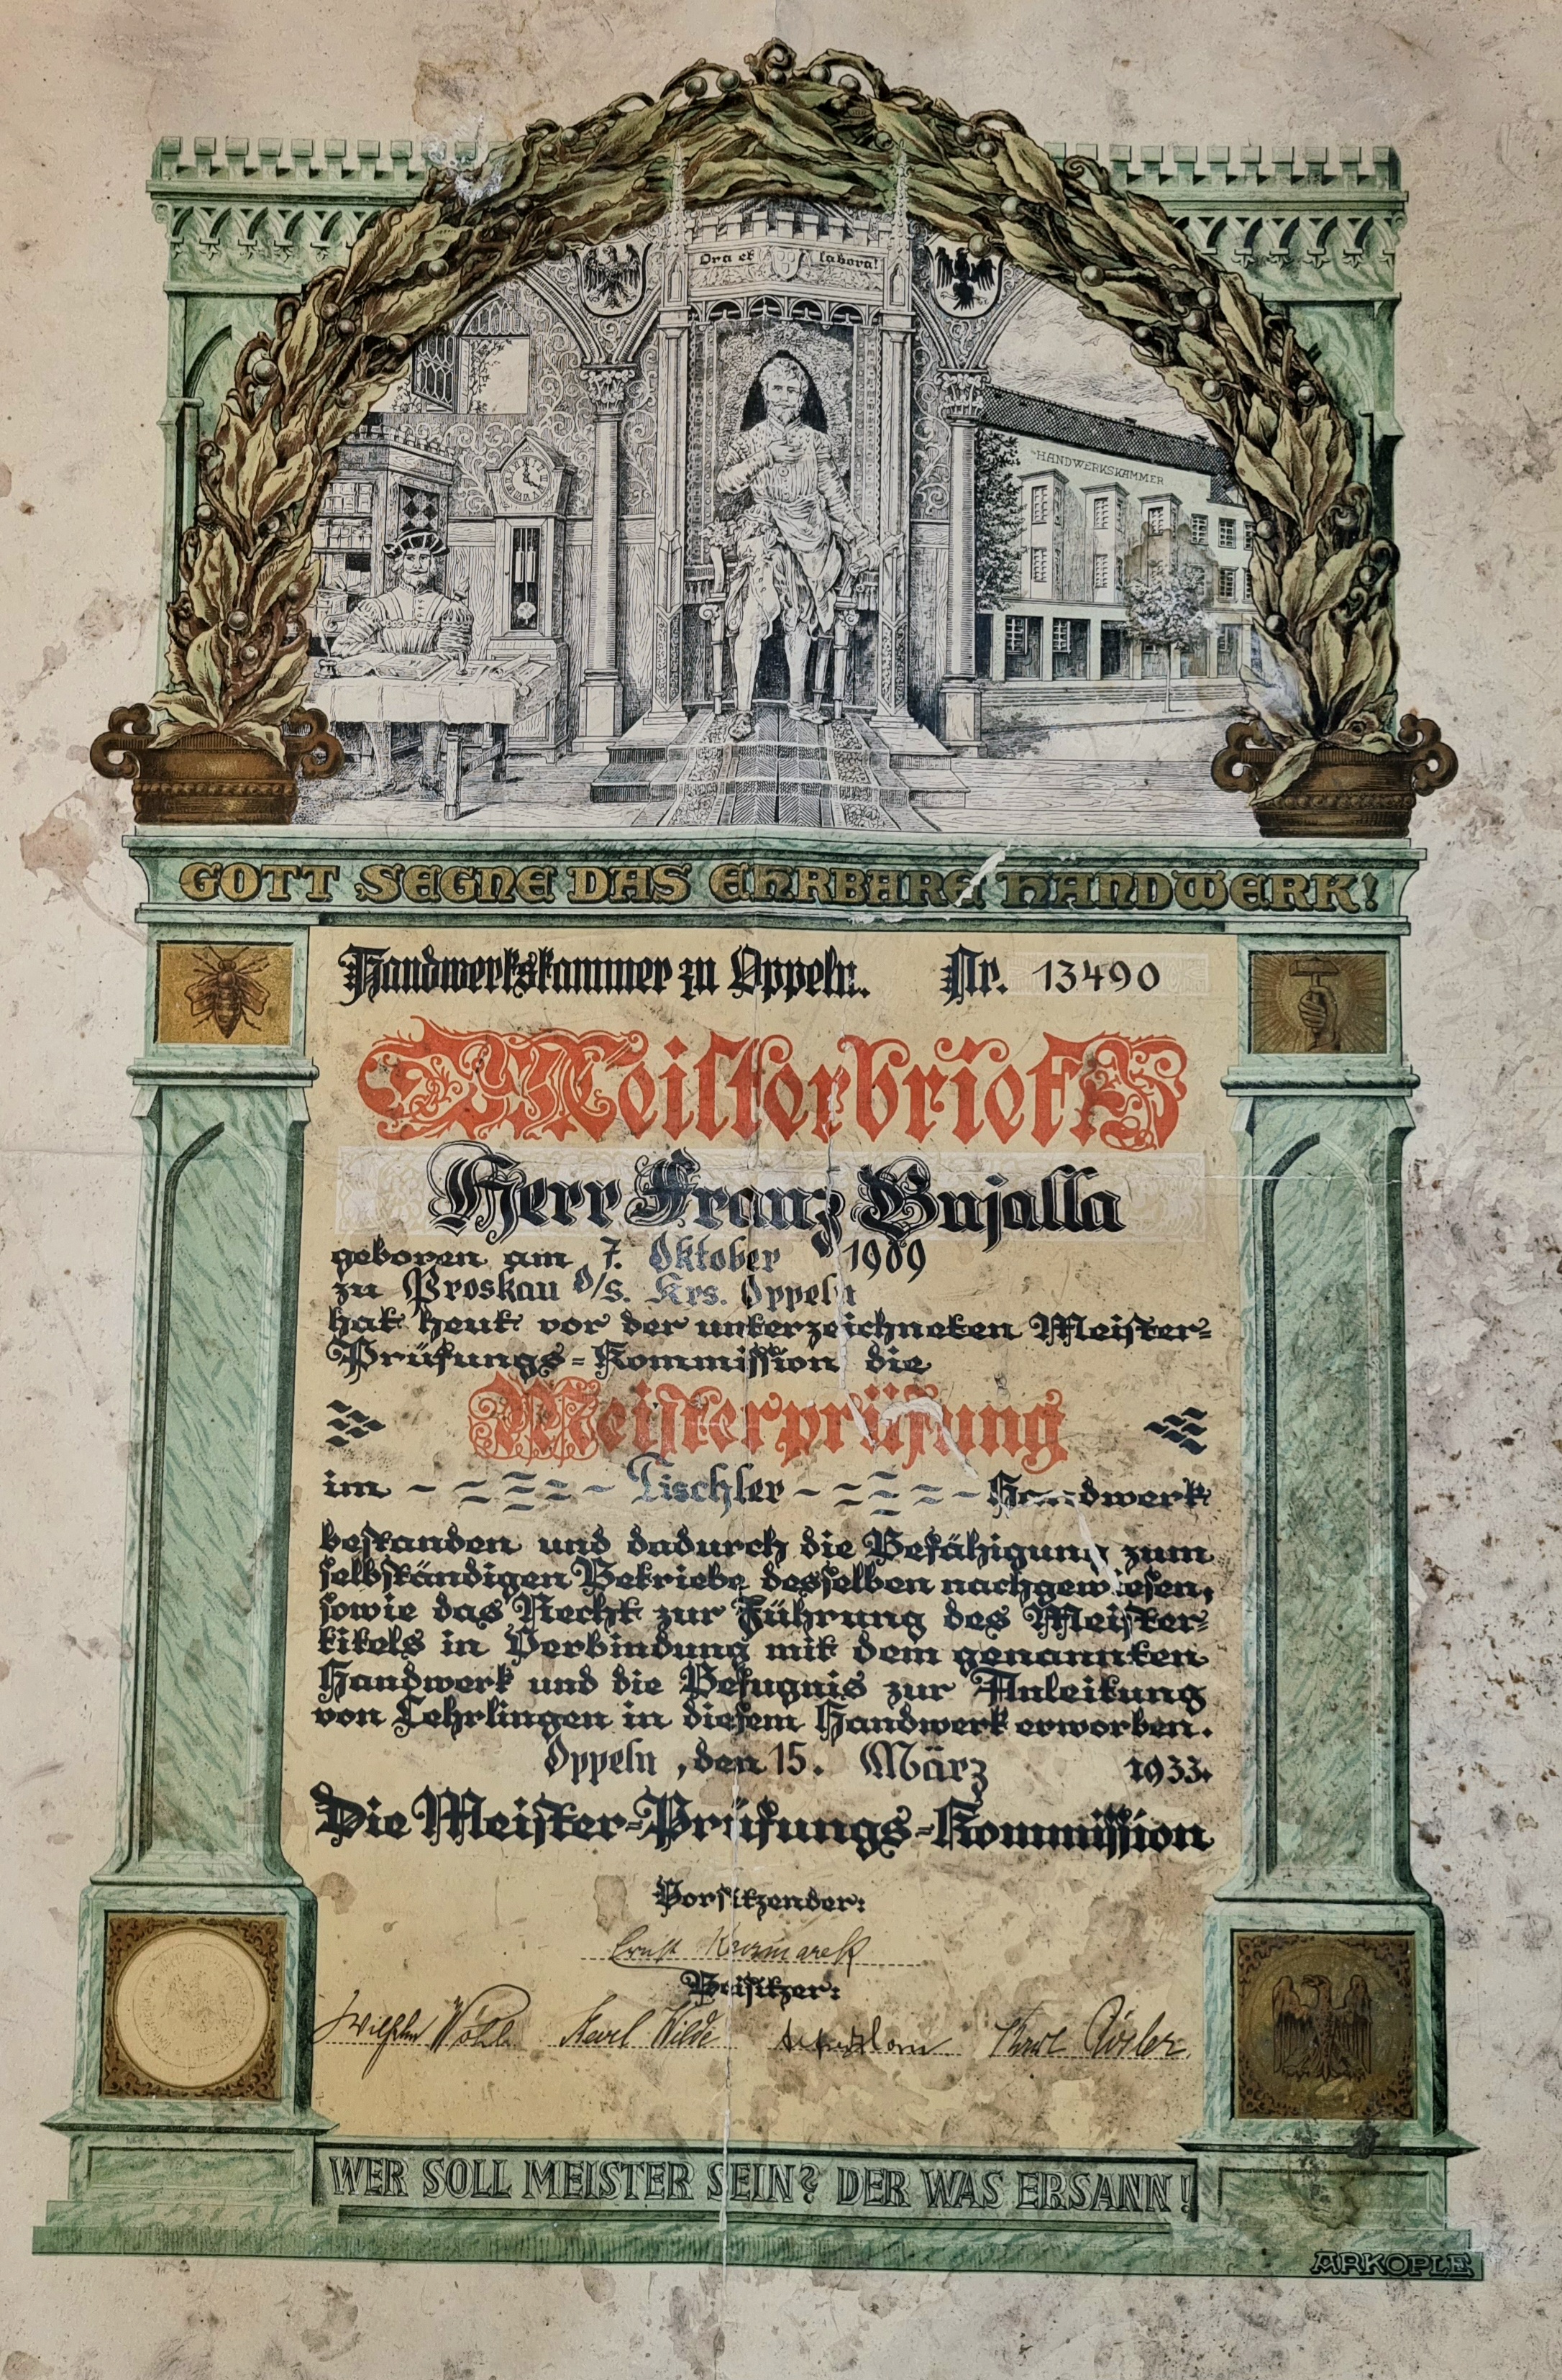 Ora et labora!
HANDWERKSKAMMER
GOTT SEGNE DAS EHRBARE HANDWERK!
Handwerkskammer zu Oppeln. Nr. 13490
Meisterbrief
Herr Franz Bujalla
geboren am 7. Oktober 1909
zu Proskau O/S. Krs. Oppeln
hat heut vor der unterzeichneten Meister-
Prüfungs-Kommission die
Meisterprüfung
im Tischler Handwerk
bestanden und dadurch die Befähigung zum
selbständigen Betriebe desselben nachgewiesen,
sowie das Recht zur Führung des Meister-
titels in Verbindung mit dem genannten
Handwerk und die Befugnis zur Anleitung
von Lehrlingen in diesem Handwerk erworben.
Oppeln, den 15. März 1933.
Die Meister-Prüfungs-Kommission
Vorsitzender:
Ernst
Beisitzer:
Wilhelm Karl Wilde
WER SOLL MEISTER SEIN? DER WAS ERSANN!
ARKOPLE